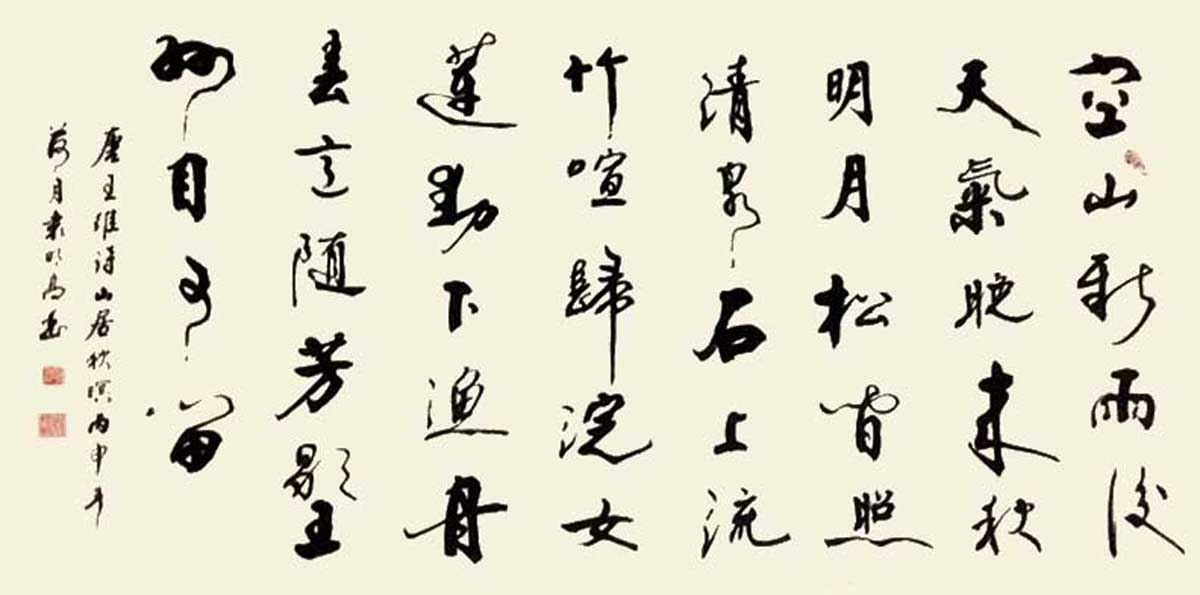 空山新雨後
天氣晚來秋
明月松間照
清泉石上流
竹喧歸浣女
蓮動下漁舟
春意随芳歇王
孫自可留
唐王維詩山居秋暝丙申年
荷月明高書